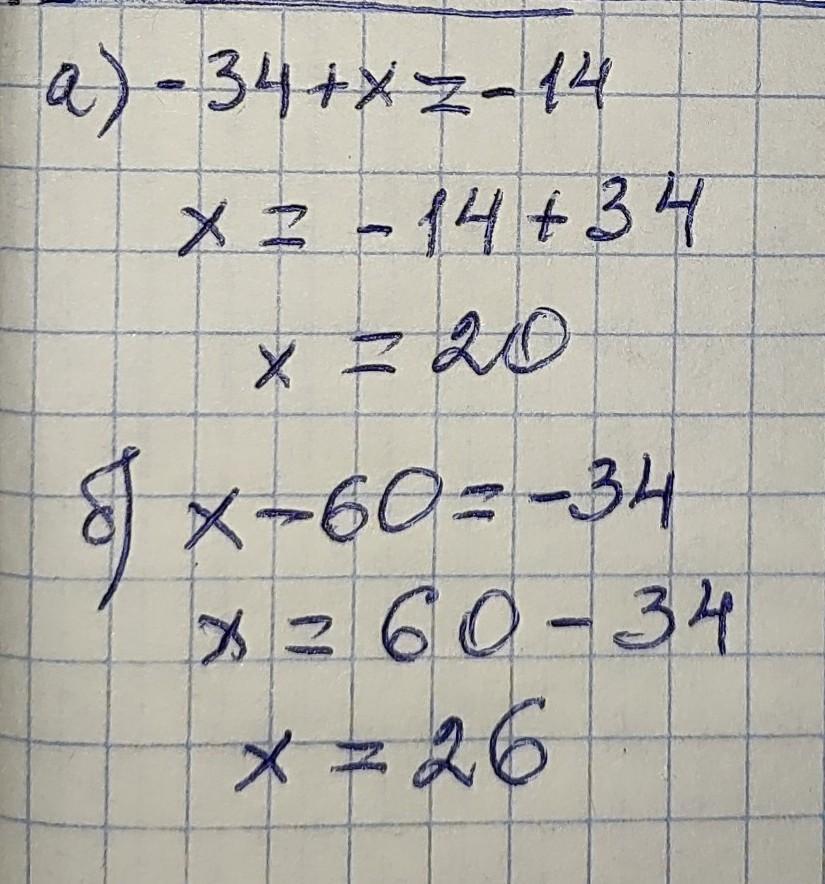 а) -34+x=-14
x = -14+34
x = 20
б) x-60=-34
x = 60-34
x = 26